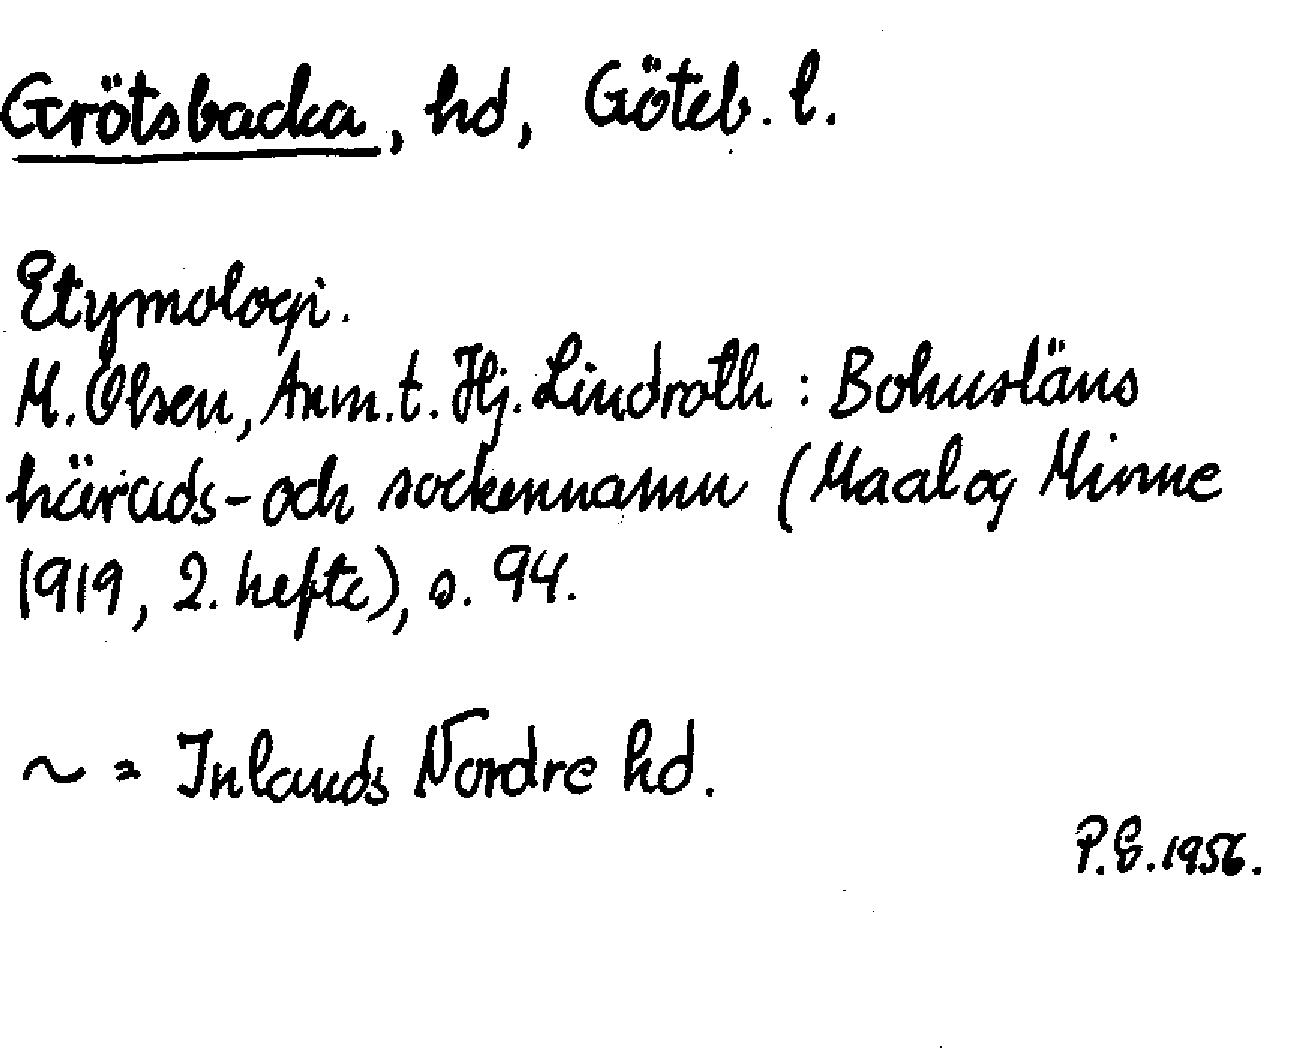 Grötsbacka, hd, Göteb. l.
Etymologi.
M. Olsen, Anm. t. Hj. Lindroth: Bohusläns
härads- och sockennamn (Maal og Minne
1919, 2. hefte), s. 94.
~ = Inlands Nordre hd.
P.E. 1956.